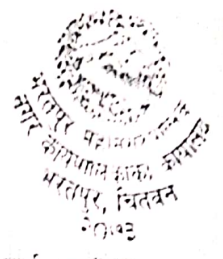 भरतपुर महानगर
नगर कार्यपालिकाको कार्यालय
भरतपुर, चितवन
२०७३